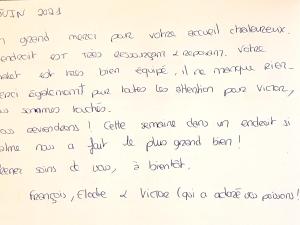 JUIN 2021
n grand merci pour votre accueil chaleureux.
endroit est très ressourçant & reposant. Votre
alet est très bien équipé, il ne manque rien.
erci également pour toutes les attention pour Victor,
us sommes touchés.
ous reviendrons ! Cette semaine dans un endroit si
alme nous a fait le plus grand bien !
renez soins de vous, à bientôt.
François, Elodie & Victor (qui a adoré vos poissons !